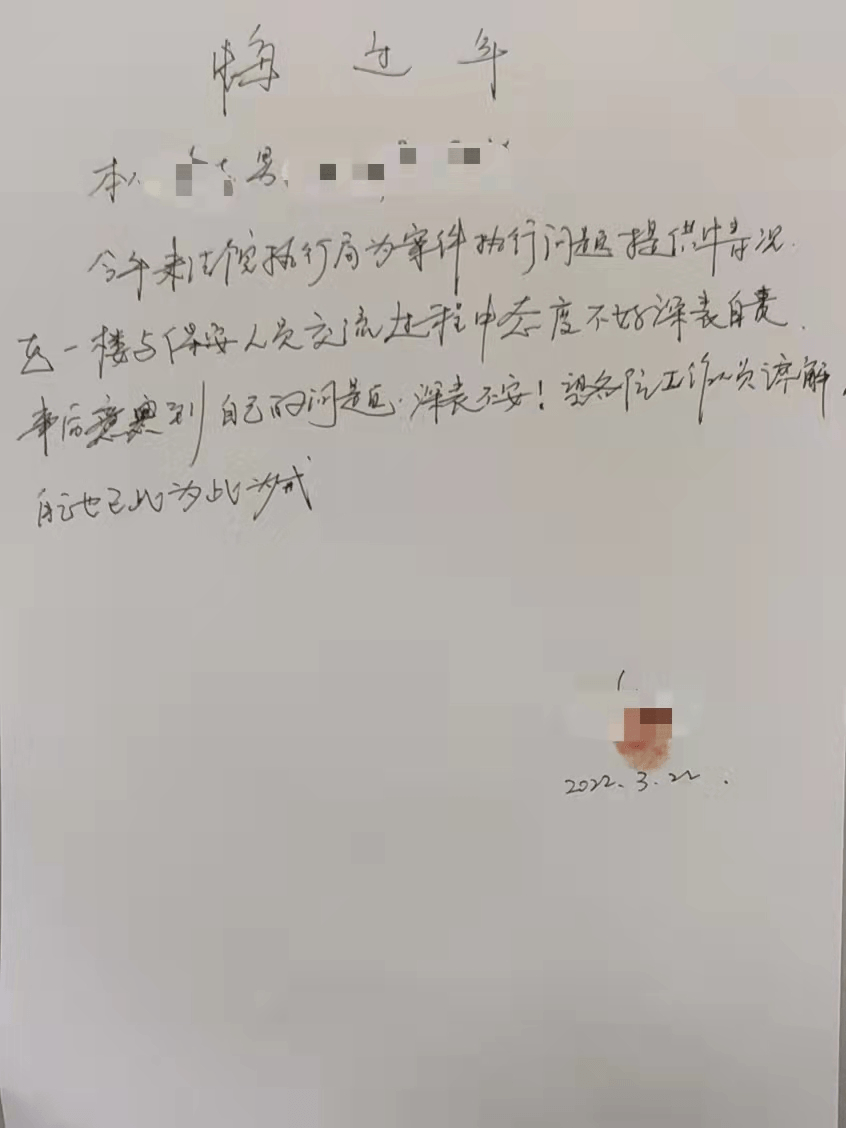 悔过书
本人
今年来法院执行局为案件执行问题提供情况.
在一楼与保安人员交流过程中态度不好深表自责.
事后意思到自己的问题.深表不安!望各位工作人员谅解,
已此为此为戒
2022.3.22.